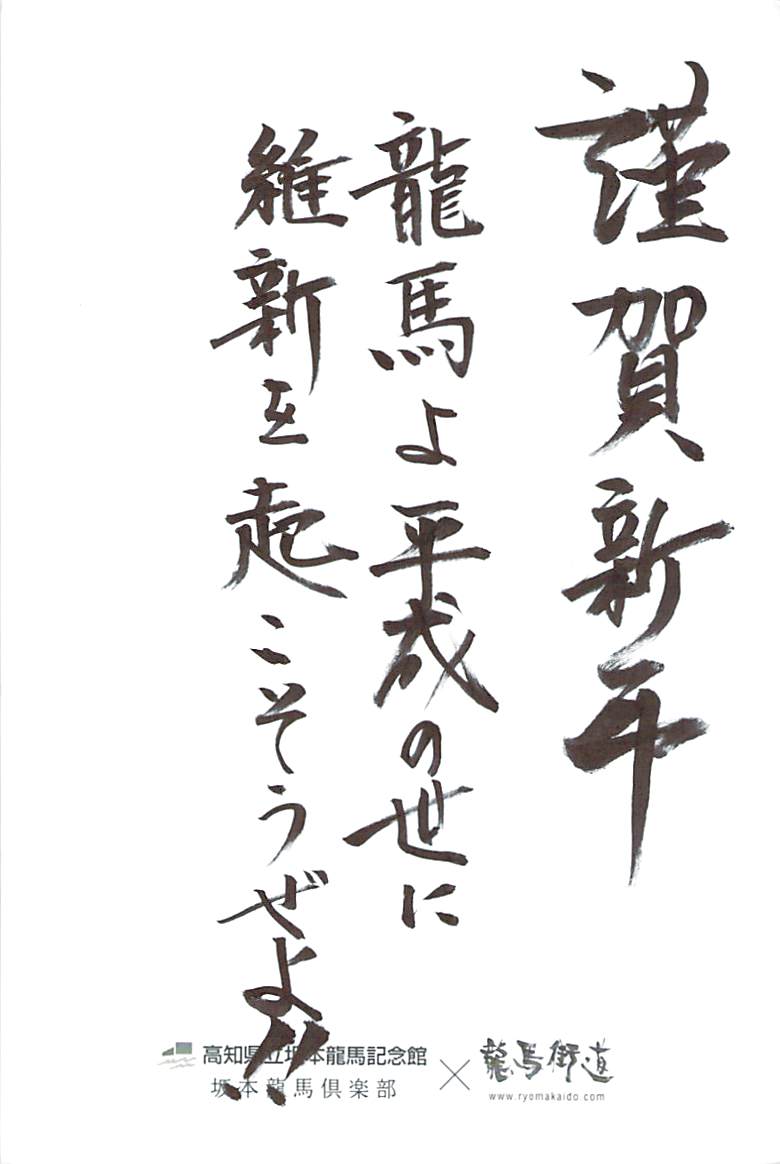 謹賀新年
龍馬よ平成の世に
維新を起こそうぜよ!!
高知県立坂本龍馬記念館
坂本龍馬倶楽部
×
龍馬街道
www.ryomakaido.com